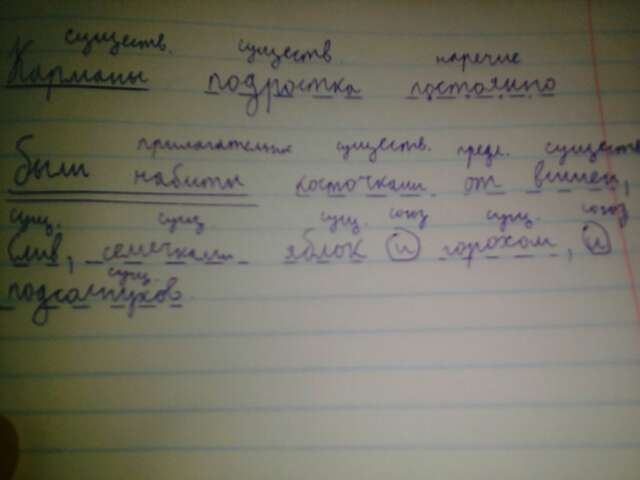 существ. существ наречие
Карманы подростка постоянно
прилагательное существ. предл. существ
были набиты косточками от вишен,
сущ. сущ. сущ. союз сущ. союз
слив, семечками яблок и горохом, и
сущ.
подсолнухов